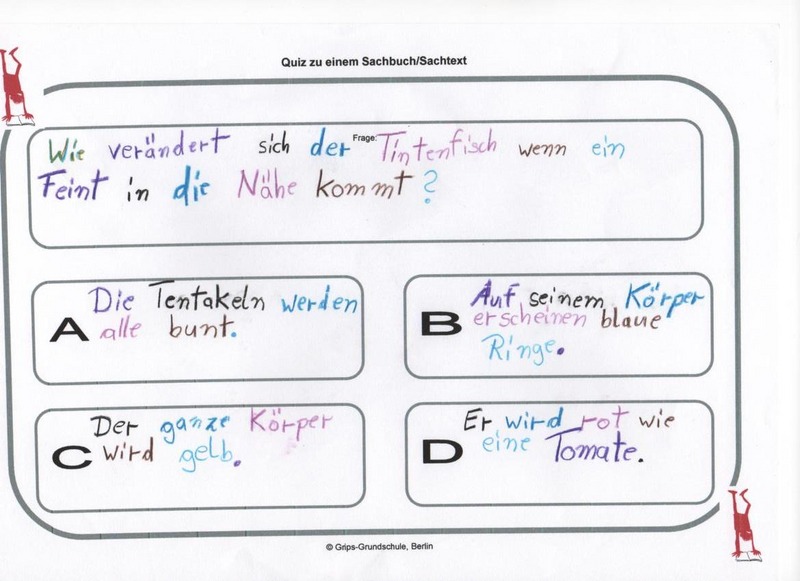 Quiz zu einem Sachbuch/Sachtext
Frage:
Wie verändert sich der Tintenfisch wenn ein
Feint in die Nähe kommt?
A
Die Tentakeln werden
alle bunt.
B
Auf seinem Körper
erscheinen blaue
Ringe.
C
Der ganze Körper
wird gelb.
D
Er wird rot wie
eine Tomate.
© Grips-Grundschule, Berlin